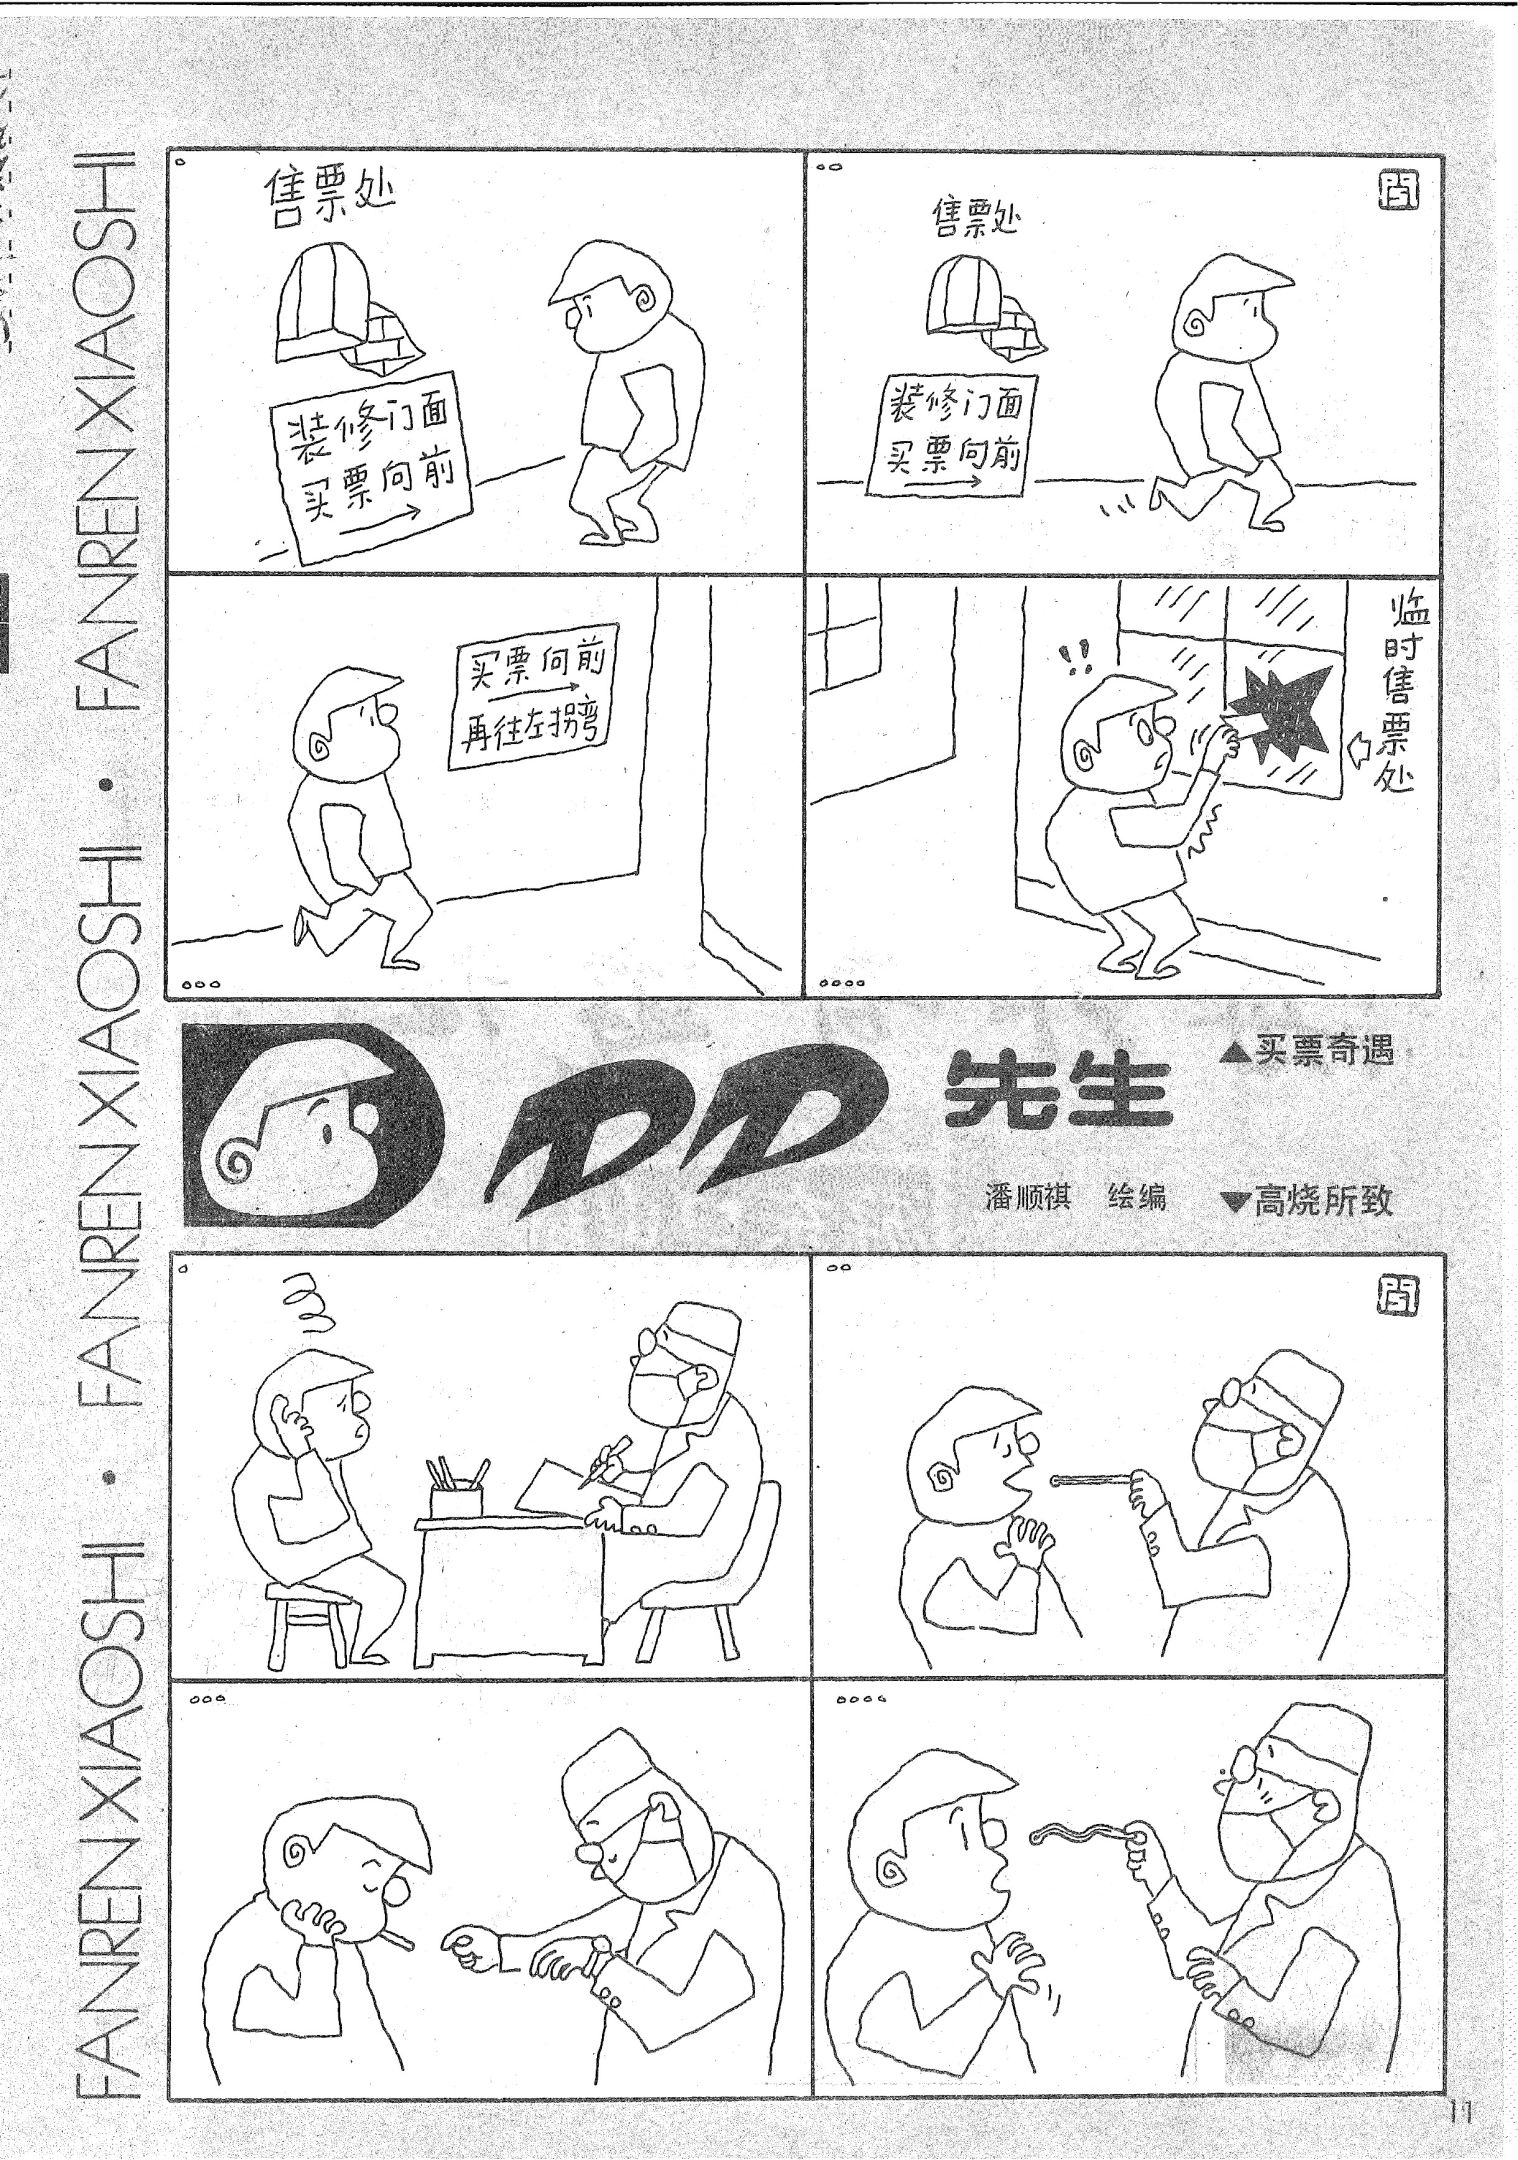 FANRENXIAOSHI · FANRENXIAOSHI · FANRENXIAOSHI
售票处
装修门面
买票向前
售票处
装修门面
买票向前
买票向前
再往左拐弯
!!
临时售票处
DD先生
▲买票奇遇
潘顺祺 绘编
▼高烧所致
11